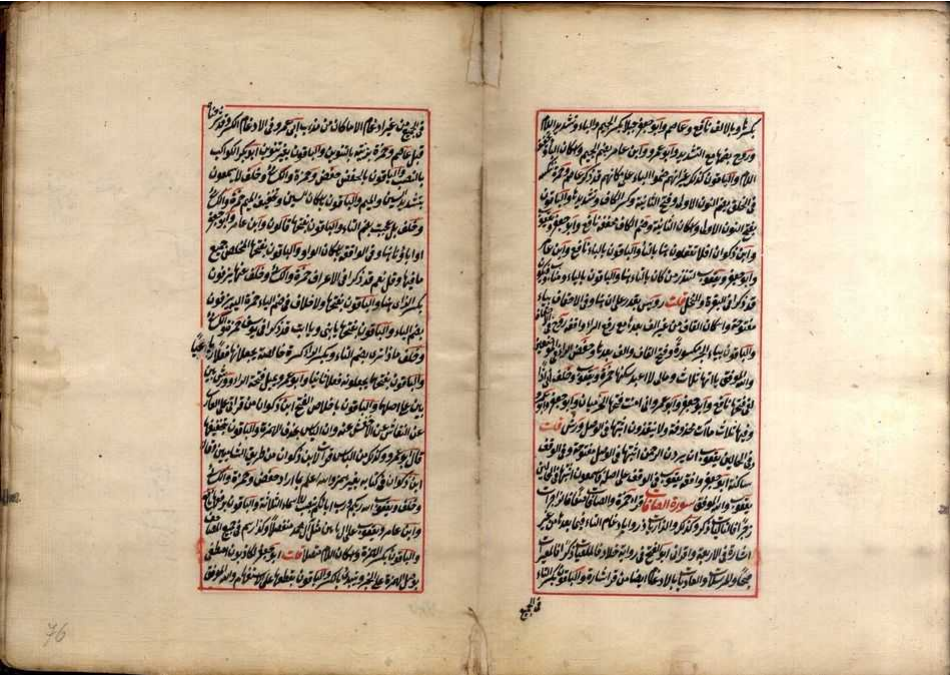 بكسر وبالالف نافع وعاصم وابو جعفر جبلا بكسر الجيم والباء وتشديد اللام
وروح بضمها مع التشديد وابو عمرو وابن عامر بضم الجيم واسكان الباء وتخفيف
اللام والباقون كذلك غير انهم ضموا الباء على مكانتهم قد ذكر عاصم وحمزة ننكسه
في الخلق بضم النون الاولى وفتح الثانية وكسر الكاف وتشديدها والباقون
بفتح النون الاولى واسكان الثانية وضم الكاف مخففة نافع وابو جعفر ويعقوب
وابن ذكوان افلا تعقلون هنا بالتاء والباقون بالياء نافع وابن عامر
وابو جعفر ويعقوب لتنذر من كان بالتاء هنا والباقون بالياء
قد ذكر في البقرة والنحل قلت رويس يقدر على ان هنا وفي الاحقاف بياء
مفتوحة واسكان القاف من غير الف بعدها مع رفع الراء وافقه روح في الاحقاف
والباقون بباء الجر مكسورة وفتح القاف والف بعدها وخفض الراء
والله الموفق يا آتها ثلاث ومالي لا اعبد سكنها حمزة ويعقوب وخلف اني اذا
لفي فتحها نافع وابو جعفر وابو عمرو اني امنت فتحها الحرميان وابو جعفر وابو عمرو
وفيها ثلاث محذوفة ولا ينقذون اثبتها في الوصل ورش قلت
وفي الحالين يعقوب ان يردن الرحمن اثبتها في الوصل مفتوحة وفي الوقف
ساكنة ابو جعفر وافق يعقوب في الوقف على اصله فاسمعون اثبتها في الحالين
يعقوب والله الموفق سورة الصافات قرأ حمزة والصافات صفا فالزاجرات
زجرا فالتاليات ذكرا وكذلك والذاريات ذروا بادغام التاء فيما بعدها من غير
اشارة في الاربعة واقرأني ابو الفتح في رواية خلاد فالملقيات ذكرا فالمغيرات
صبحا والعاديات بالادغام ايضا من غير اشارة والباقون بكسر التاء
في الجميع
في الجميع من غير ادغام الا ما كان من مذهب ابي عمرو في الادغام الكبير وقد ذكرناه
قبل عاصم وحمزة بزينة بالتنوين والباقون بغير تنوين ابو بكر الكواكب
بالنصب والباقون بالخفض حفص وحمزة والكسائي وخلف لا يسمعون
بتشديد السين والميم والباقون باسكان السين وتخفيف الميم حمزة والكسائي
وخلف بل عجبت بضم التاء والباقون بفتحها قالون وابن عامر وابو جعفر
او اباؤنا هنا وفي الواقعة باسكان الواو والباقون بفتحها المخلصين جميع
ما فيها وقل نعم قد ذكر في الاعراف حمزة والكسائي وخلف عنها ينزفون
بكسر الزاي هنا والباقون بفتحها ولا خلاف في ضم الياء حمزة اليه يزفون
بضم الياء والباقون بفتحها يا بني ويا ابت قد ذكر في يوسف حمزة والكسائي
وخلف ماذا ترى بضم التاء وكسر الراء كسرة خالصة يجعلانها فعلا رباعيا
والباقون بفتحها يجعلونه فعلا ثلاثيا وابو عمرو يميل فتحة الراء وورش بين
بين على اصلها والباقون باخلاص الفتح ابن ذكوان من قراءتي على الفارسي
عن النقاش عن الاخفش عنه وان الياس بحذف الهمزة والباقون بتحقيقها
قال ابو عمرو وكذلك من الياس قرأت لابن ذكوان من طريق الشاميين وقال
ابن ذكوان في كتابه بغير همز والله اعلم بما اراد حفص وحمزة والكسائي
وخلف ويعقوب الله ربكم ورب ابائكم بنصب الاسماء الثلاثة والباقون برفعها نافع
وابن عامر ويعقوب على ال ياسين مثل ال محمد منفصلا وكذا رسم في جميع المصاحف
والباقون بكسر الهمزة واسكان اللام متصلا قلت ابو جعفر لكاذبون اصطفى
بوصل الهمزة على الخبر ويبتدئ بالكسر والباقون بقطعها على الاستفهام والله الموفق
76